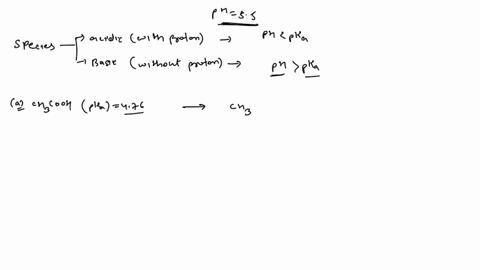 pH = 5.5
Species → acidic (with proton) → pH < pKa
→ Basic (without proton) → pH > pKa
(a) CH3COOH (pKa) = 4.76 → CH3